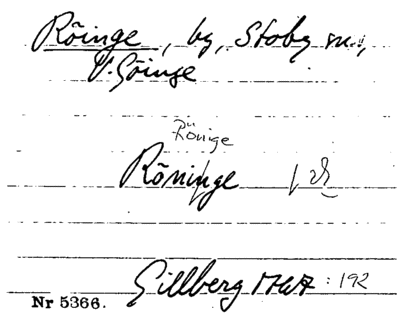 Röinge, by, Stoby sn.,
V. Göinge
Rönige
Röninge
Gillberg 1767 : 192
Nr 5366.